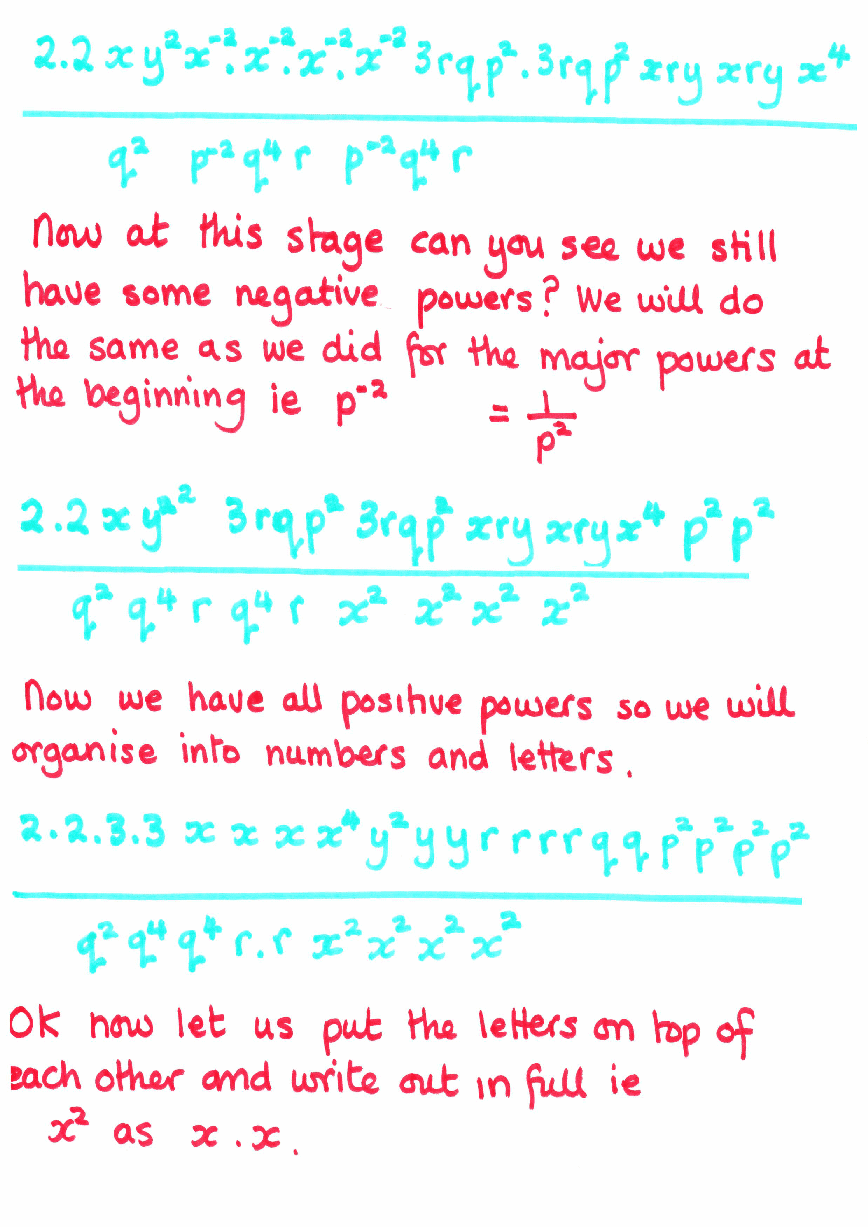 2.2 x y² x⁻².x⁻².x⁻².x⁻² 3rqp².3rqp² xry xry x⁴
q² p⁻² q⁴ r p⁻² q⁴ r
Now at this stage can you see we still
have some negative powers? We will do
the same as we did for the major powers at
the beginning ie p⁻² = 1/p²
2.2 x y² ² 3rqp² 3rqp² xry xry x⁴ p² p²
q² q⁴ r q⁴ r x² x² x² x²
Now we have all positive powers so we will
organise into numbers and letters.
2.2.3.3 x x x x⁴ y² y y r r r r q q p² p² p² p²
q² q⁴ q⁴ r.r x² x² x² x²
Ok now let us put the letters on top of
each other and write out in full ie
x² as x.x.